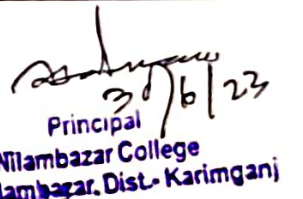 30/6/23
Principal
Nilambazar College
Dist.- Karimganj